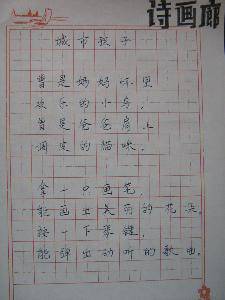 诗画廊
城市孩子
曾是妈妈怀里
欢乐的小鸟，
曾是爸爸肩上
调皮的猫咪。
拿一只画笔，
能画出美丽的花朵。
按一下琴键，
能弹出动听的歌曲。